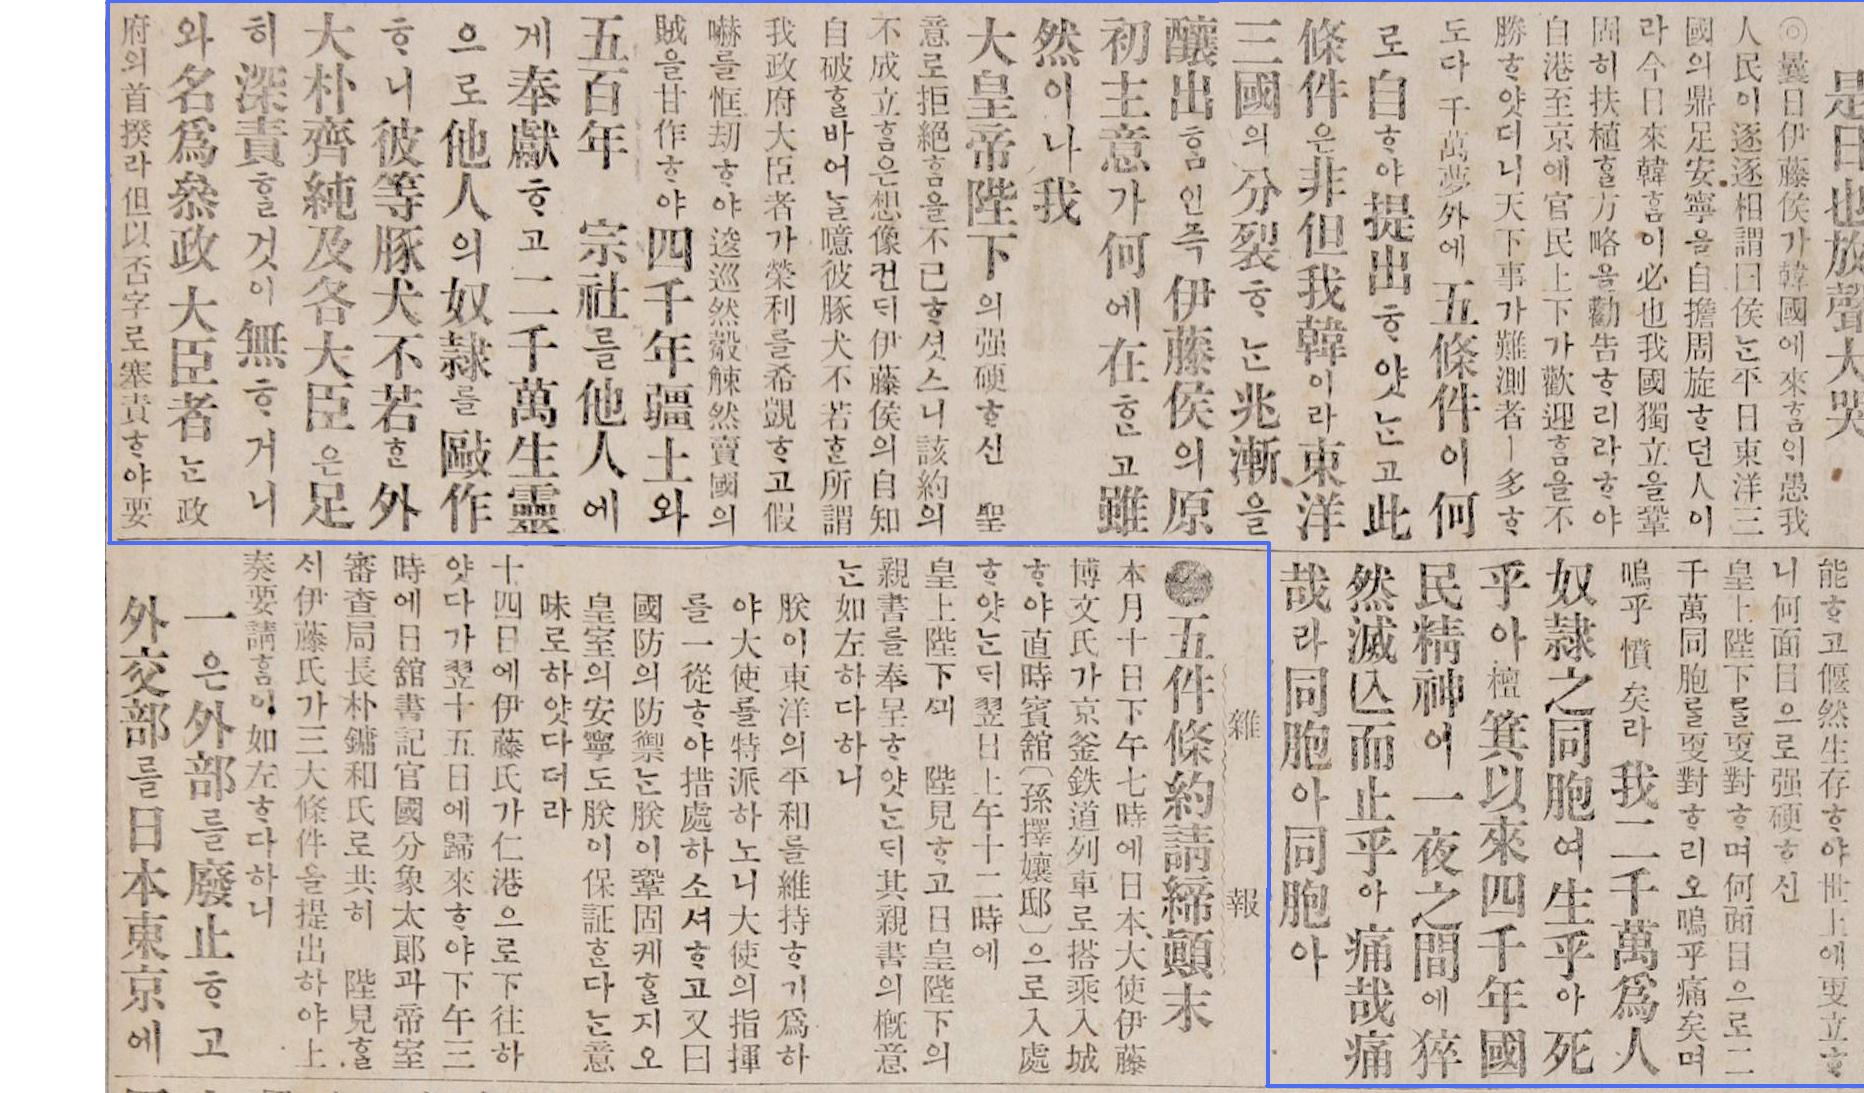 是日也放聲大哭
◎曩日伊藤侯가韓國에來홈의愚我
人民이逐逐相謂曰侯는平日東洋三
國의鼎足安寧을自擔周旋ᄒᆞ던人이
라今日來韓홈이必也我國獨立을鞏
固히扶植ᄒᆞᆯ方略을勸告ᄒᆞ리라ᄒᆞ야
自港至京에官民上下가歡迎홈을不
勝ᄒᆞ얏더니天下事가難測者ㅣ多ᄒᆞ
도다千萬夢外에五條件이何
로自ᄒᆞ야提出ᄒᆞ얏는고此
條件은非但我韓이라東洋
三國의分裂ᄒᆞ는兆漸을
釀出홈인즉伊藤侯의原
初主意가何에在ᄒᆞᆫ고雖
然이나我
大皇帝陛下의强硬ᄒᆞ신 聖
意로拒絶홈을不已ᄒᆞ셧스니該約의
不成立홈은想像컨ᄃᆡ伊藤侯의自知
自破ᄒᆞᆯ바어ᄂᆞᆯ噫彼豚犬不若ᄒᆞᆫ所謂
我政府大臣者가榮利를希覬ᄒᆞ고假
嚇를恇刧ᄒᆞ야逡巡然觳觫然賣國의
賊을甘作ᄒᆞ야四千年疆土와
五百年 宗社를他人에
게奉獻ᄒᆞ고二千萬生靈
으로他人의奴隷를敺作
ᄒᆞ니彼等豚犬不若ᄒᆞᆫ外
大朴齊純及各大臣은足
히深責ᄒᆞᆯ것이無ᄒᆞ거니
와名爲叅政大臣者는政
府의首揆라但以否字로塞責ᄒᆞ야要
能ᄒᆞ고偃然生存ᄒᆞ야世上에更立ᄒᆞ
니何面目으로强硬ᄒᆞ신
皇上陛下를更對ᄒᆞ며何面目으로二
千萬同胞를更對ᄒᆞ리오嗚乎痛矣며
嗚乎憤矣라我二千萬爲人
奴隷之同胞여生乎아死
乎아檀箕以來四千年國
民精神이一夜之間에猝
然滅亾而止乎아痛哉痛
哉라同胞아同胞아
雜報
●五件條約請締顚末
本月十日下午七時에日本大使伊藤
博文氏가京釜鉄道列車로搭乘入城
ᄒᆞ야直時賓舘(孫擇孃邸)으로入處
ᄒᆞ얏는ᄃᆡ翌日上午十二時에
皇上陛下ᄭᅴ 陛見ᄒᆞ고日皇陛下의
親書를奉呈ᄒᆞ얏는ᄃᆡ其親書의槪意
는如左하다하니
朕이東洋의平和를維持ᄒᆞ기爲하
야大使를特派하노니大使의指揮
를一從ᄒᆞ야措處하소셔ᄒᆞ고又曰
國防의防禦는朕이鞏固케ᄒᆞᆯ지오
皇室의安寧도朕이保証ᄒᆞᆫ다는意
味로하얏다더라
十四日에伊藤氏가仁港으로下往하
얏다가翌十五日에歸來ᄒᆞ야下午三
時에日舘書記官國分象太郞과帝室
審査局長朴鏞和氏로共히 陛見ᄒᆞᆯ
ᄉᆡ伊藤氏가三大條件을提出하야上
奏要請홈이如左ᄒᆞ다하니
一은外部를廢止ᄒᆞ고
外交部를日本東京에